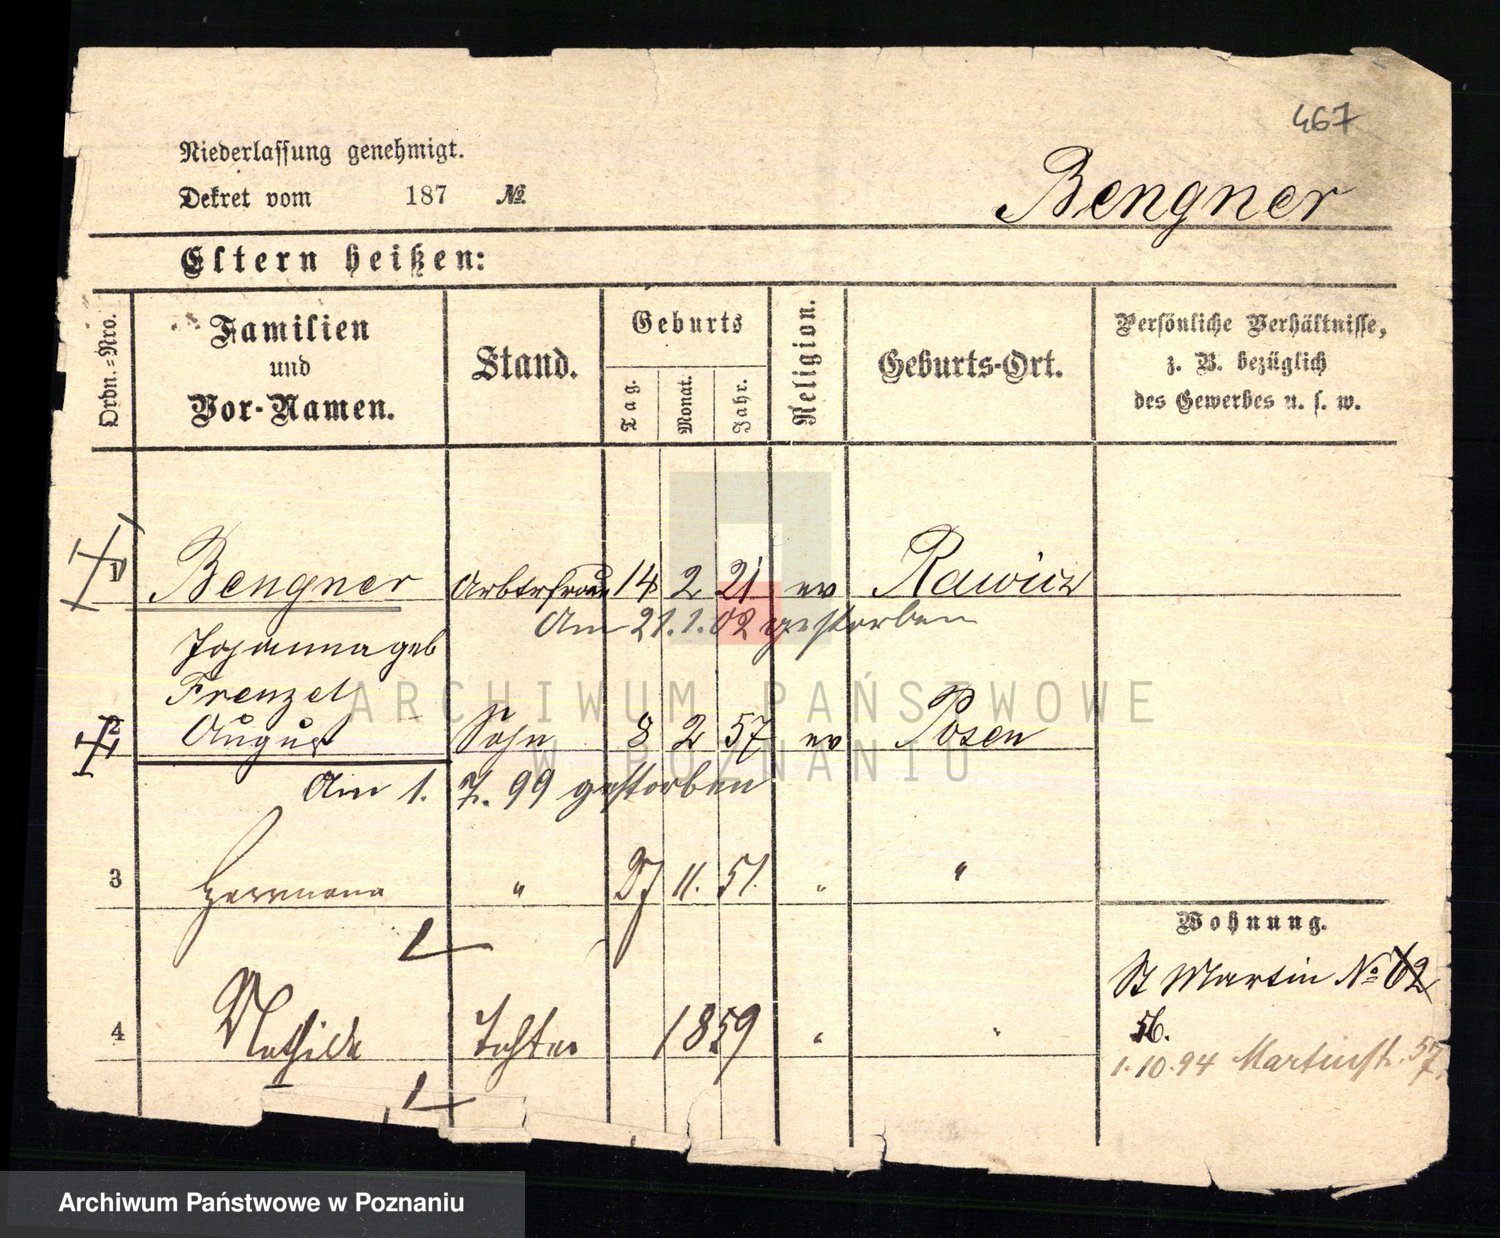 467
Niederlassung genehmigt.
Dekret vom 187 №
Bengner
Eltern heißen:
Ordn.-Nro.
Familien
und
Vor-Namen.
Stand.
Geburts
Tag.
Monat.
Jahr.
Religion.
Geburts-Ort.
Persönliche Verhältnisse,
z. B. bezüglich
des Gewerbes u. s. w.
1 Bengner Arbtrfrau 14 2 21 ev Rawicz
Am 21.1.02 gestorben
Johanna geb
Frenzel
2 August Sohn 8 2 57 ev Posen
Am 1. 7. 99 gestorben
3 Herrmann " 27 11. 51. " "
4 Mathilde Tochter 1859 " "
Wohnung.
St Martin No 62
56.
1.10.94 Martinstr. 57.
ARCHIWUM PAŃSTWOWE
W POZNANIU
Archiwum Państwowe w Poznaniu